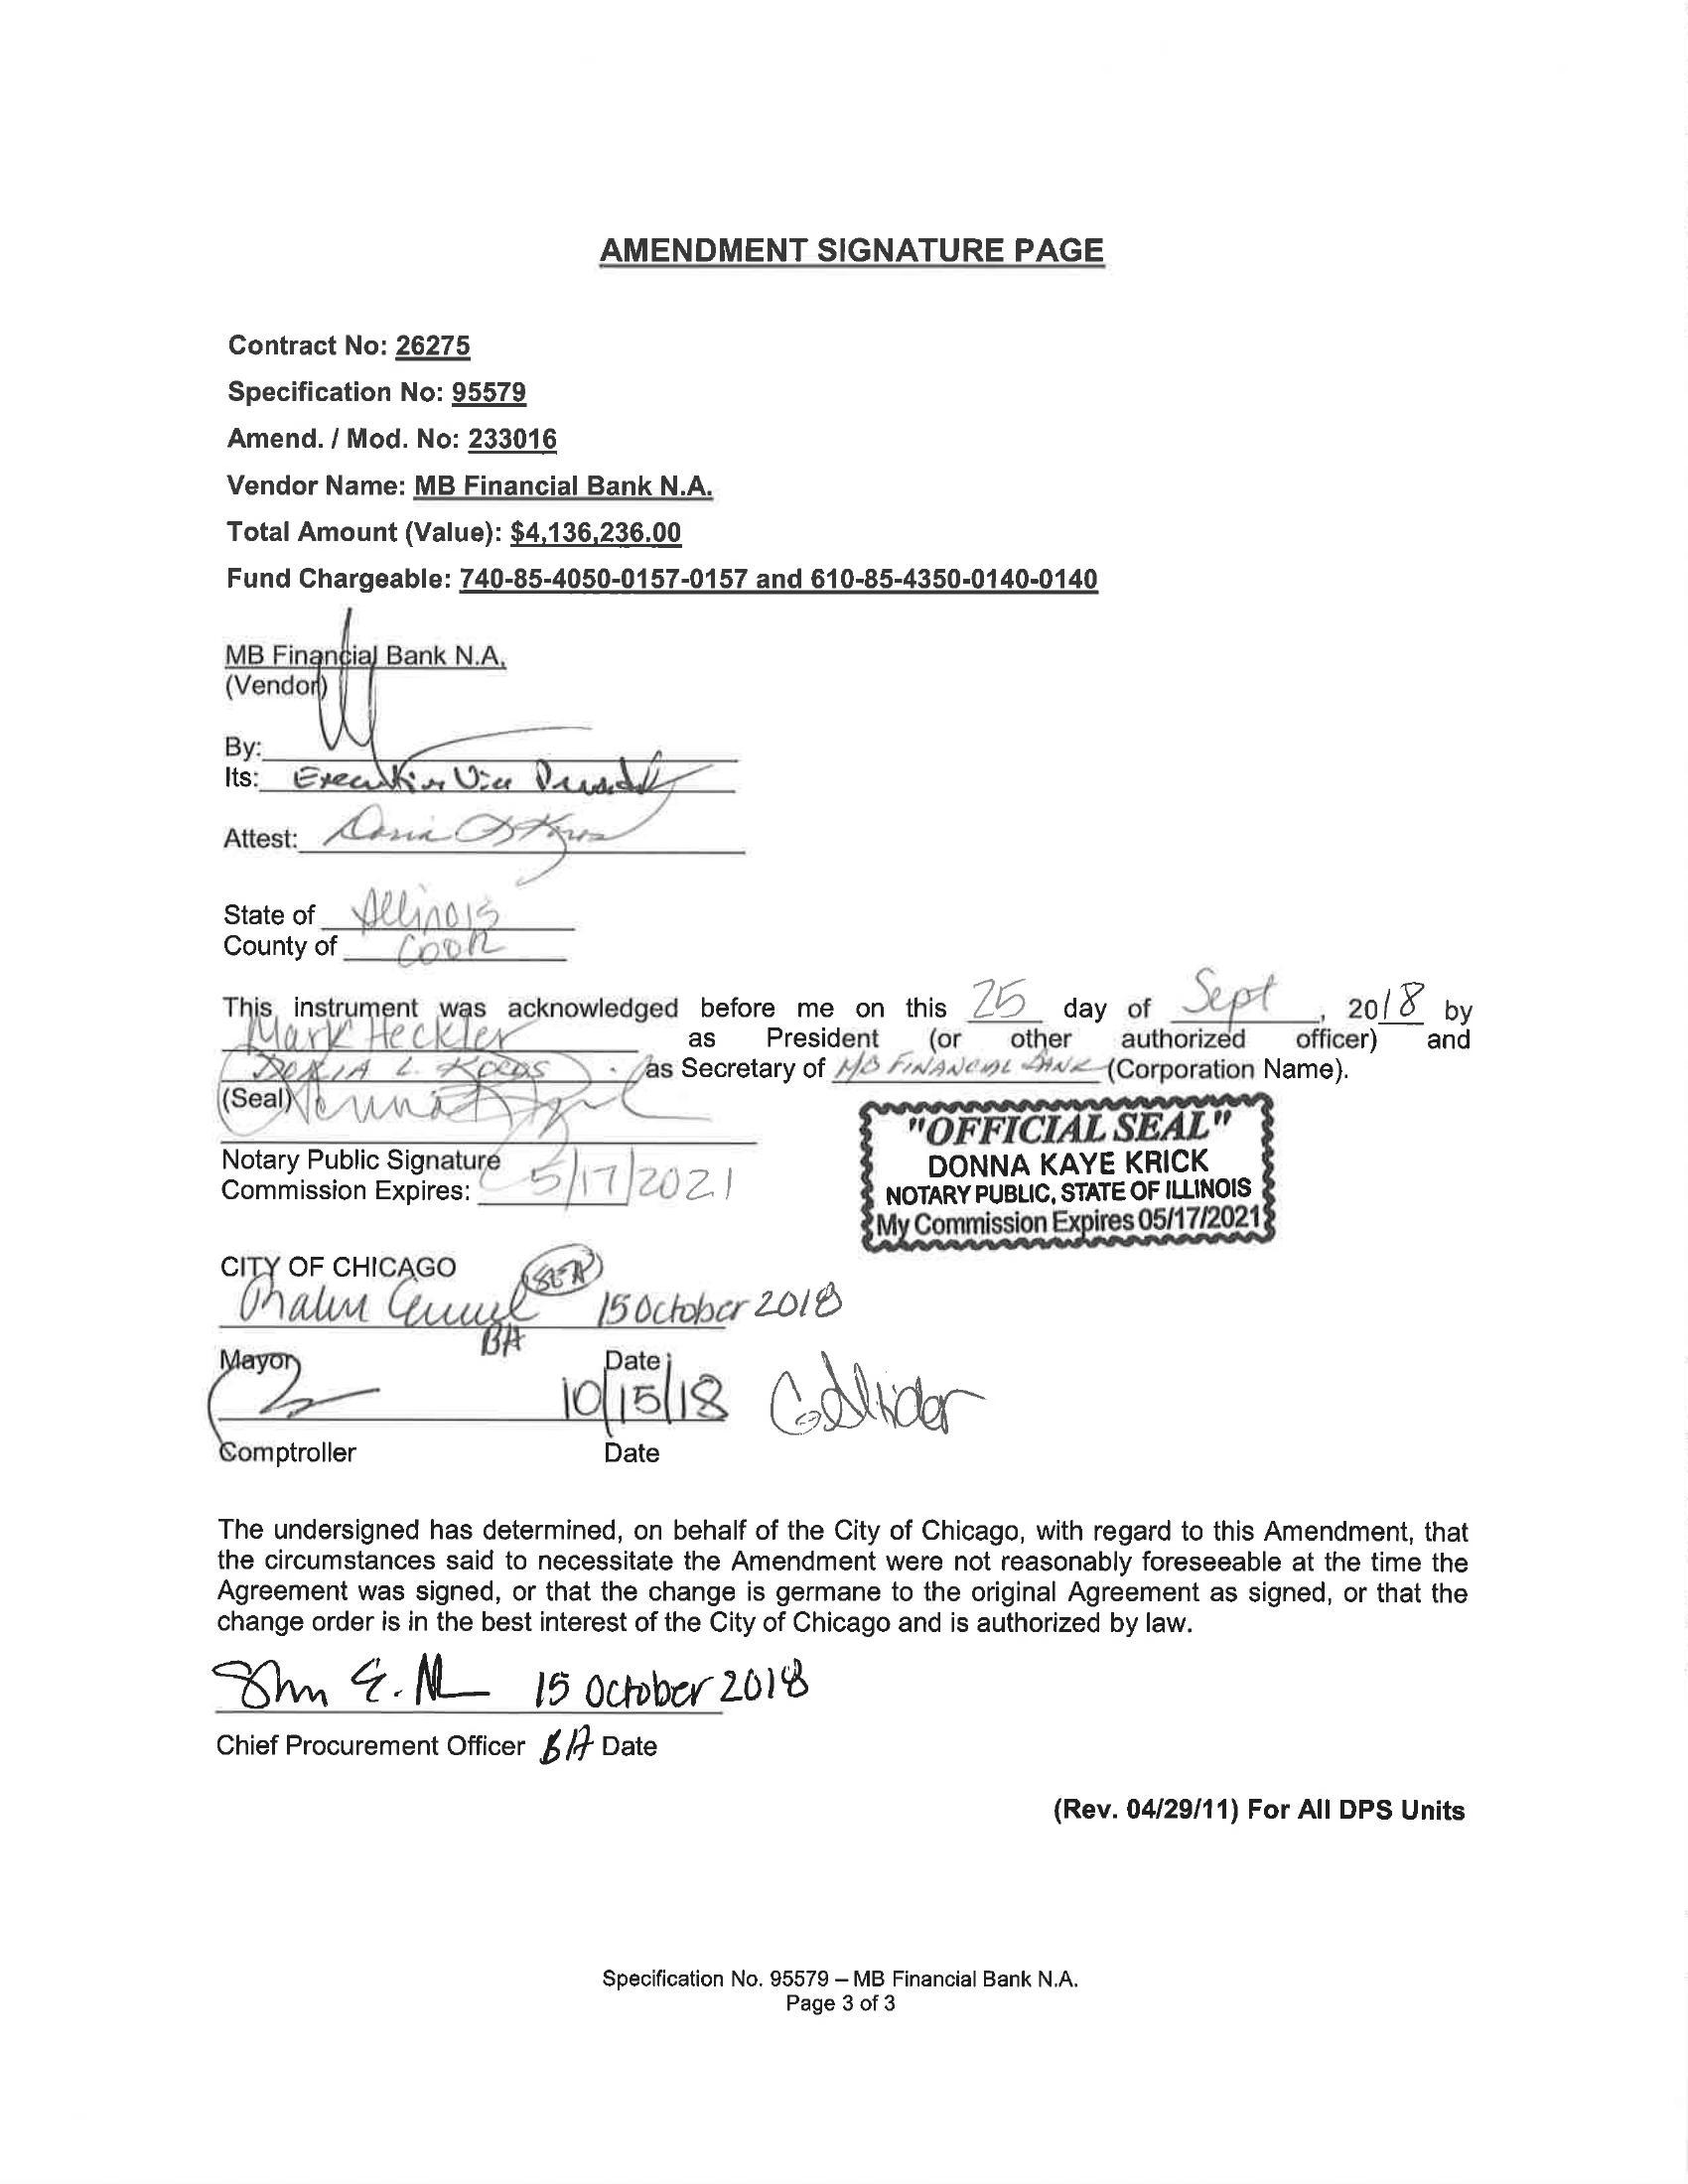 AMENDMENT SIGNATURE PAGE
Contract No: 26275
Specification No: 95579
Amend. / Mod. No: 233016
Vendor Name: MB Financial Bank N.A.
Total Amount (Value): $4,136,236.00
Fund Chargeable: 740-85-4050-0157-0157 and 610-85-4350-0140-0140
MB Financial Bank N.A.
(Vendor)
By:
Its: Executive Vice President
Attest:
State of Illinois
County of Cook
This instrument was acknowledged before me on this 25 day of Sept, 2018 by
Mark Heckler as President (or other authorized officer) and
L. as Secretary of MB FINANCIAL BANK (Corporation Name).
(Seal)
Notary Public Signature
Commission Expires: 5/17/2021
"OFFICIAL SEAL"
DONNA KAYE KRICK
NOTARY PUBLIC, STATE OF ILLINOIS
My Commission Expires 05/17/2021
CITY OF CHICAGO
15 October 2018
BA
Mayor Date
10/15/18
Comptroller Date
The undersigned has determined, on behalf of the City of Chicago, with regard to this Amendment, that
the circumstances said to necessitate the Amendment were not reasonably foreseeable at the time the
Agreement was signed, or that the change is germane to the original Agreement as signed, or that the
change order is in the best interest of the City of Chicago and is authorized by law.
15 October 2018
Chief Procurement Officer BA Date
(Rev. 04/29/11) For All DPS Units
Specification No. 95579 – MB Financial Bank N.A.
Page 3 of 3